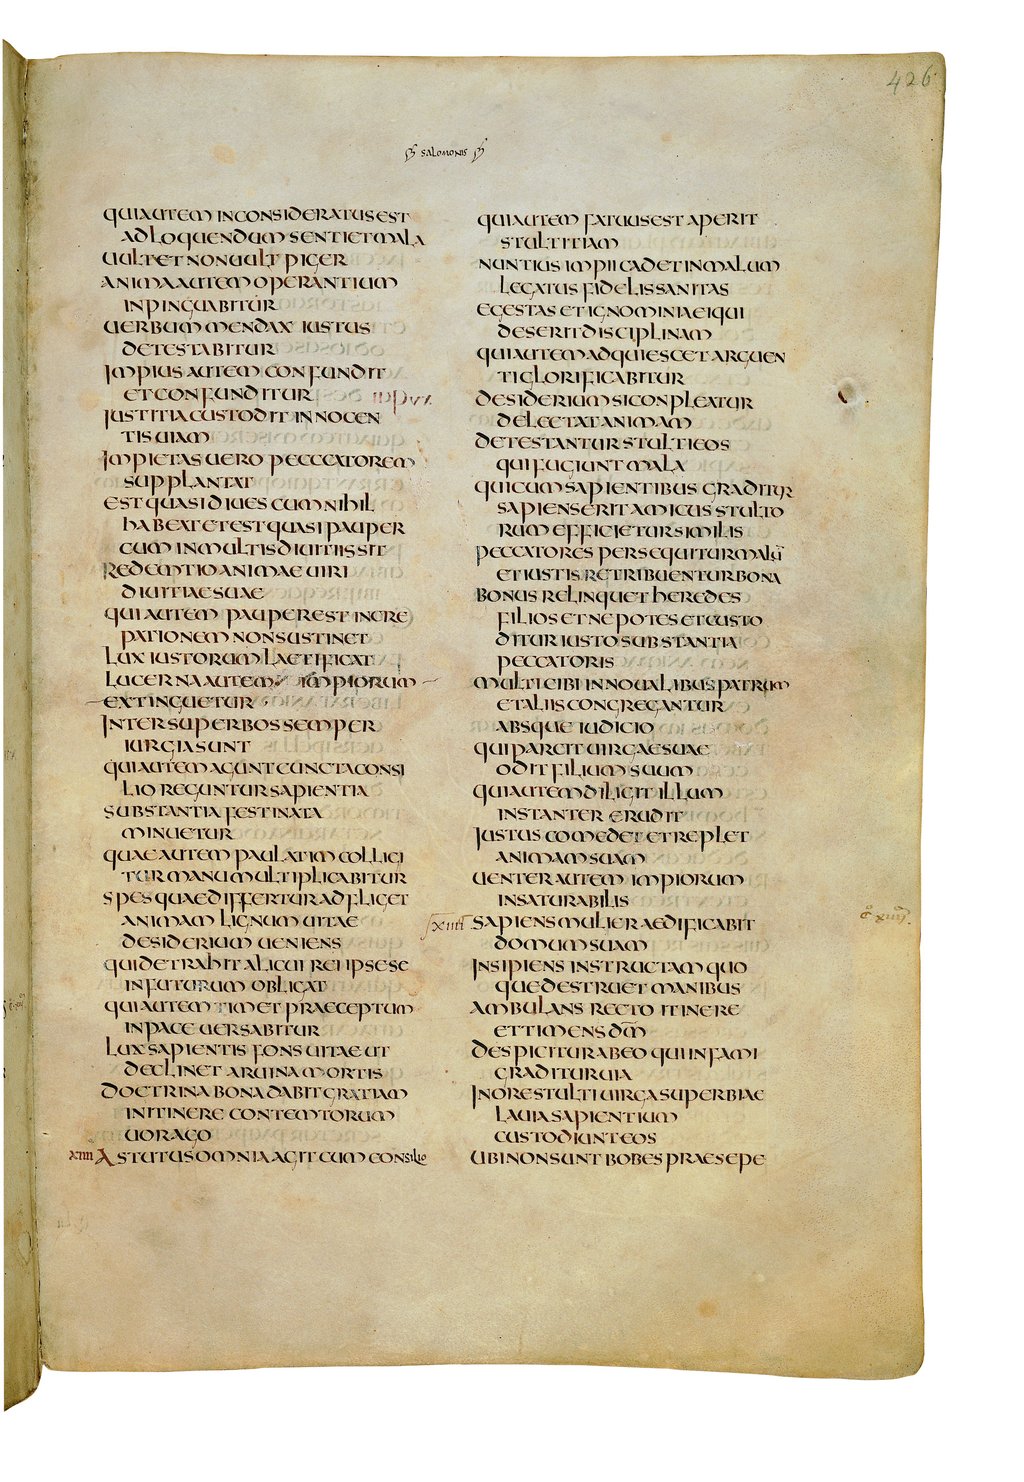 426
SALOMONIS
QUI AUTEM INCONSIDERATUS EST
AD LOQUENDUM SENTIET MALA
UULT ET NON UULT PIGER
ANIMA AUTEM OPERANTIUM
INPINGUABITUR
UERBUM MENDAX IUSTUS
DETESTABITUR
IMPIUS AUTEM CONFUNDIT
ET CONFUNDITUR
IUSTITIA CUSTODIT INNOCEN
TIS UIAM
IMPIETAS UERO PECCATOREM
SUPPLANTAT
EST QUASI DIUES CUM NIHIL
HABEAT ET EST QUASI PAUPER
CUM IN MULTIS DIUITIIS SIT
REDEMTIO ANIMAE UIRI
DIUITIAE SUAE
QUI AUTEM PAUPER EST INCRE
PATIONEM NON SUSTINET
LUX IUSTORUM LAETIFICAT
LUCERNA AUTEM IMPIORUM
EXTINGUETUR
INTER SUPERBOS SEMPER
IURGIA SUNT
QUI AUTEM AGUNT CUNCTA CONSI
LIO REGUNTUR SAPIENTIA
SUBSTANTIA FESTINATA
MINUETUR
QUAE AUTEM PAULATIM COLLIGI
TUR MANU MULTIPLICABITUR
SPES QUAE DIFFERTUR ADFLIGET
ANIMAM LIGNUM UITAE
DESIDERIUM UENIENS
QUI DETRAHIT ALICUI REI IPSE SE
IN FUTURUM OBLIGAT
QUI AUTEM TIMET PRAECEPTUM
IN PACE UERSABITUR
LUX SAPIENTIS FONS UITAE UT
DECLINET A RUINA MORTIS
DOCTRINA BONA DABIT GRATIAM
IN ITINERE CONTEMTORUM
UORAGO
XIIII ASTUTUS OMNIA AGIT CUM CONSILIO
QUI AUTEM FATUUS EST APERIT
STULTITIAM
NUNTIUS IMPII CADET IN MALUM
LEGATUS FIDELIS SANITAS
EGESTAS ET IGNOMINIA EI QUI
DESERIT DISCIPLINAM
QUI AUTEM ADQUIESCET ARGUEN
TI GLORIFICABITUR
DESIDERIUM SI CONPLEATUR
DELECTAT ANIMAM
DETESTANTUR STULTI EOS
QUI FUGIUNT MALA
QUI CUM SAPIENTIBUS GRADITUR
SAPIENS ERIT AMICUS STULTO
RUM EFFICIETUR SIMILIS
PECCATORES PERSEQUITUR MALŪ
ET IUSTIS RETRIBUENTUR BONA
BONUS RELINQUET HEREDES
FILIOS ET NEPOTES ET CUSTO
DITUR IUSTO SUBSTANTIA
PECCATORIS
MULTI CIBI IN NOUALIBUS PATRUM
ET ALIIS CONGREGANTUR
ABSQUE IUDICIO
QUI PARCIT UIRGAE SUAE
ODIT FILIUM SUUM
QUI AUTEM DILIGIT ILLUM
INSTANTER ERUDIT
IUSTUS COMEDET ET REPLET
ANIMAM SUAM
UENTER AUTEM IMPIORUM
INSATURABILIS
XIIII SAPIENS MULIER AEDIFICABIT
DOMUM SUAM
INSIPIENS INSTRUCTAM QUO
QUE DESTRUET MANIBUS
AMBULANS RECTO ITINERE
ET TIMENS DM̄
DESPICITUR AB EO QUI INFAMI
GRADITUR UIA
IN ORE STULTI UIRGA SUPERBIAE
LAUIA SAPIENTIUM
CUSTODIUNT EOS
UBI NON SUNT BOBES PRAESEPE